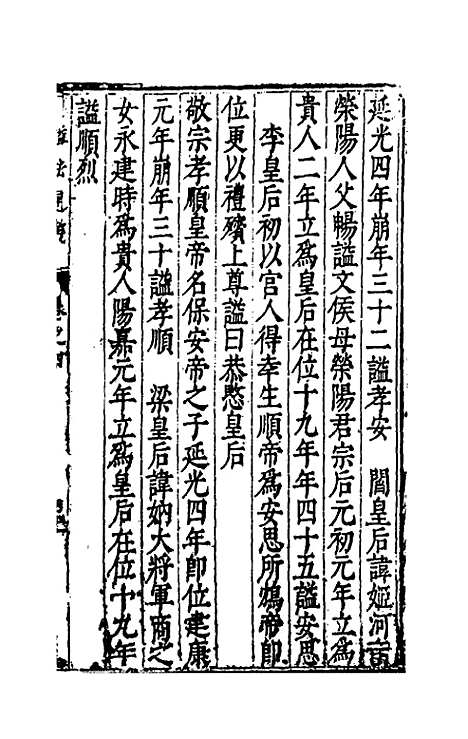 延光四年崩年三十二謚孝安　閻皇后諱姬河南
榮陽人父暢謚文侯母榮陽君宗后元初元年立爲
貴人二年立爲皇后在位十九年年四十五謚安思
李皇后初以官人得幸生順帝爲安思所鴆帝卽
位更以禮殯上尊謚曰恭愍皇后
敬宗孝順皇帝名保安帝之子延光四年卽位建康
元年崩年三十謚孝順　梁皇后諱妠大將軍商之
女永建時爲貴人陽嘉元年立爲皇后在位十九年
謚順烈